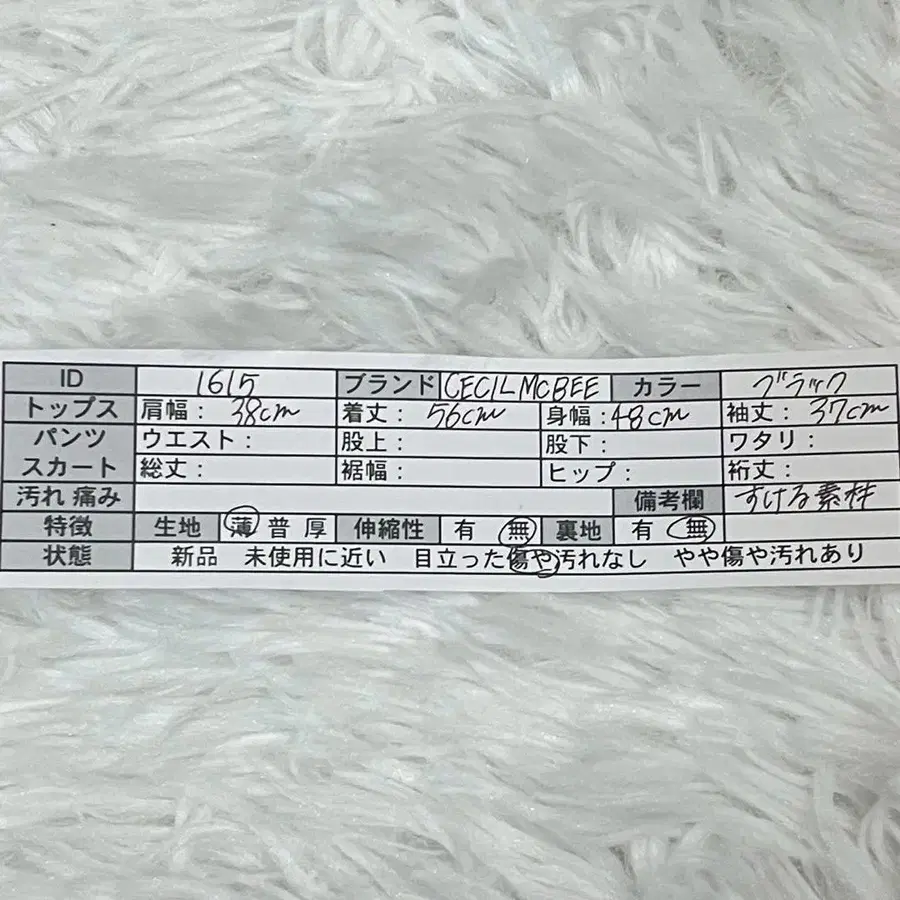 ID 1615 ブランド CECIL McBEE カラー ブラック
トップス 肩幅： 38cm 着丈： 56cm 身幅： 48cm 袖丈： 37cm
パンツ ウエスト： 股上： 股下： ワタリ：
スカート 総丈： 裾幅： ヒップ： 裄丈：
汚れ 痛み 備考欄 すける素材
特徴 生地 薄 普 厚 伸縮性 有 無 裏地 有 無
状態 新品 未使用に近い 目立った傷や汚れなし やや傷や汚れあり